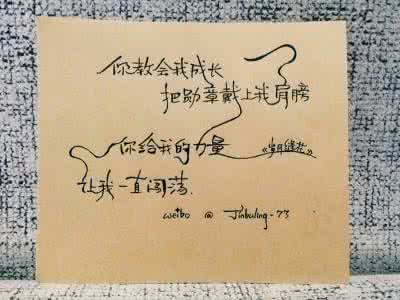 你教会我成长
把勋章戴上我肩膀
你给我的力量
《岁月缝花》
让我一直闯荡.
weibo @ Jinbuling-73